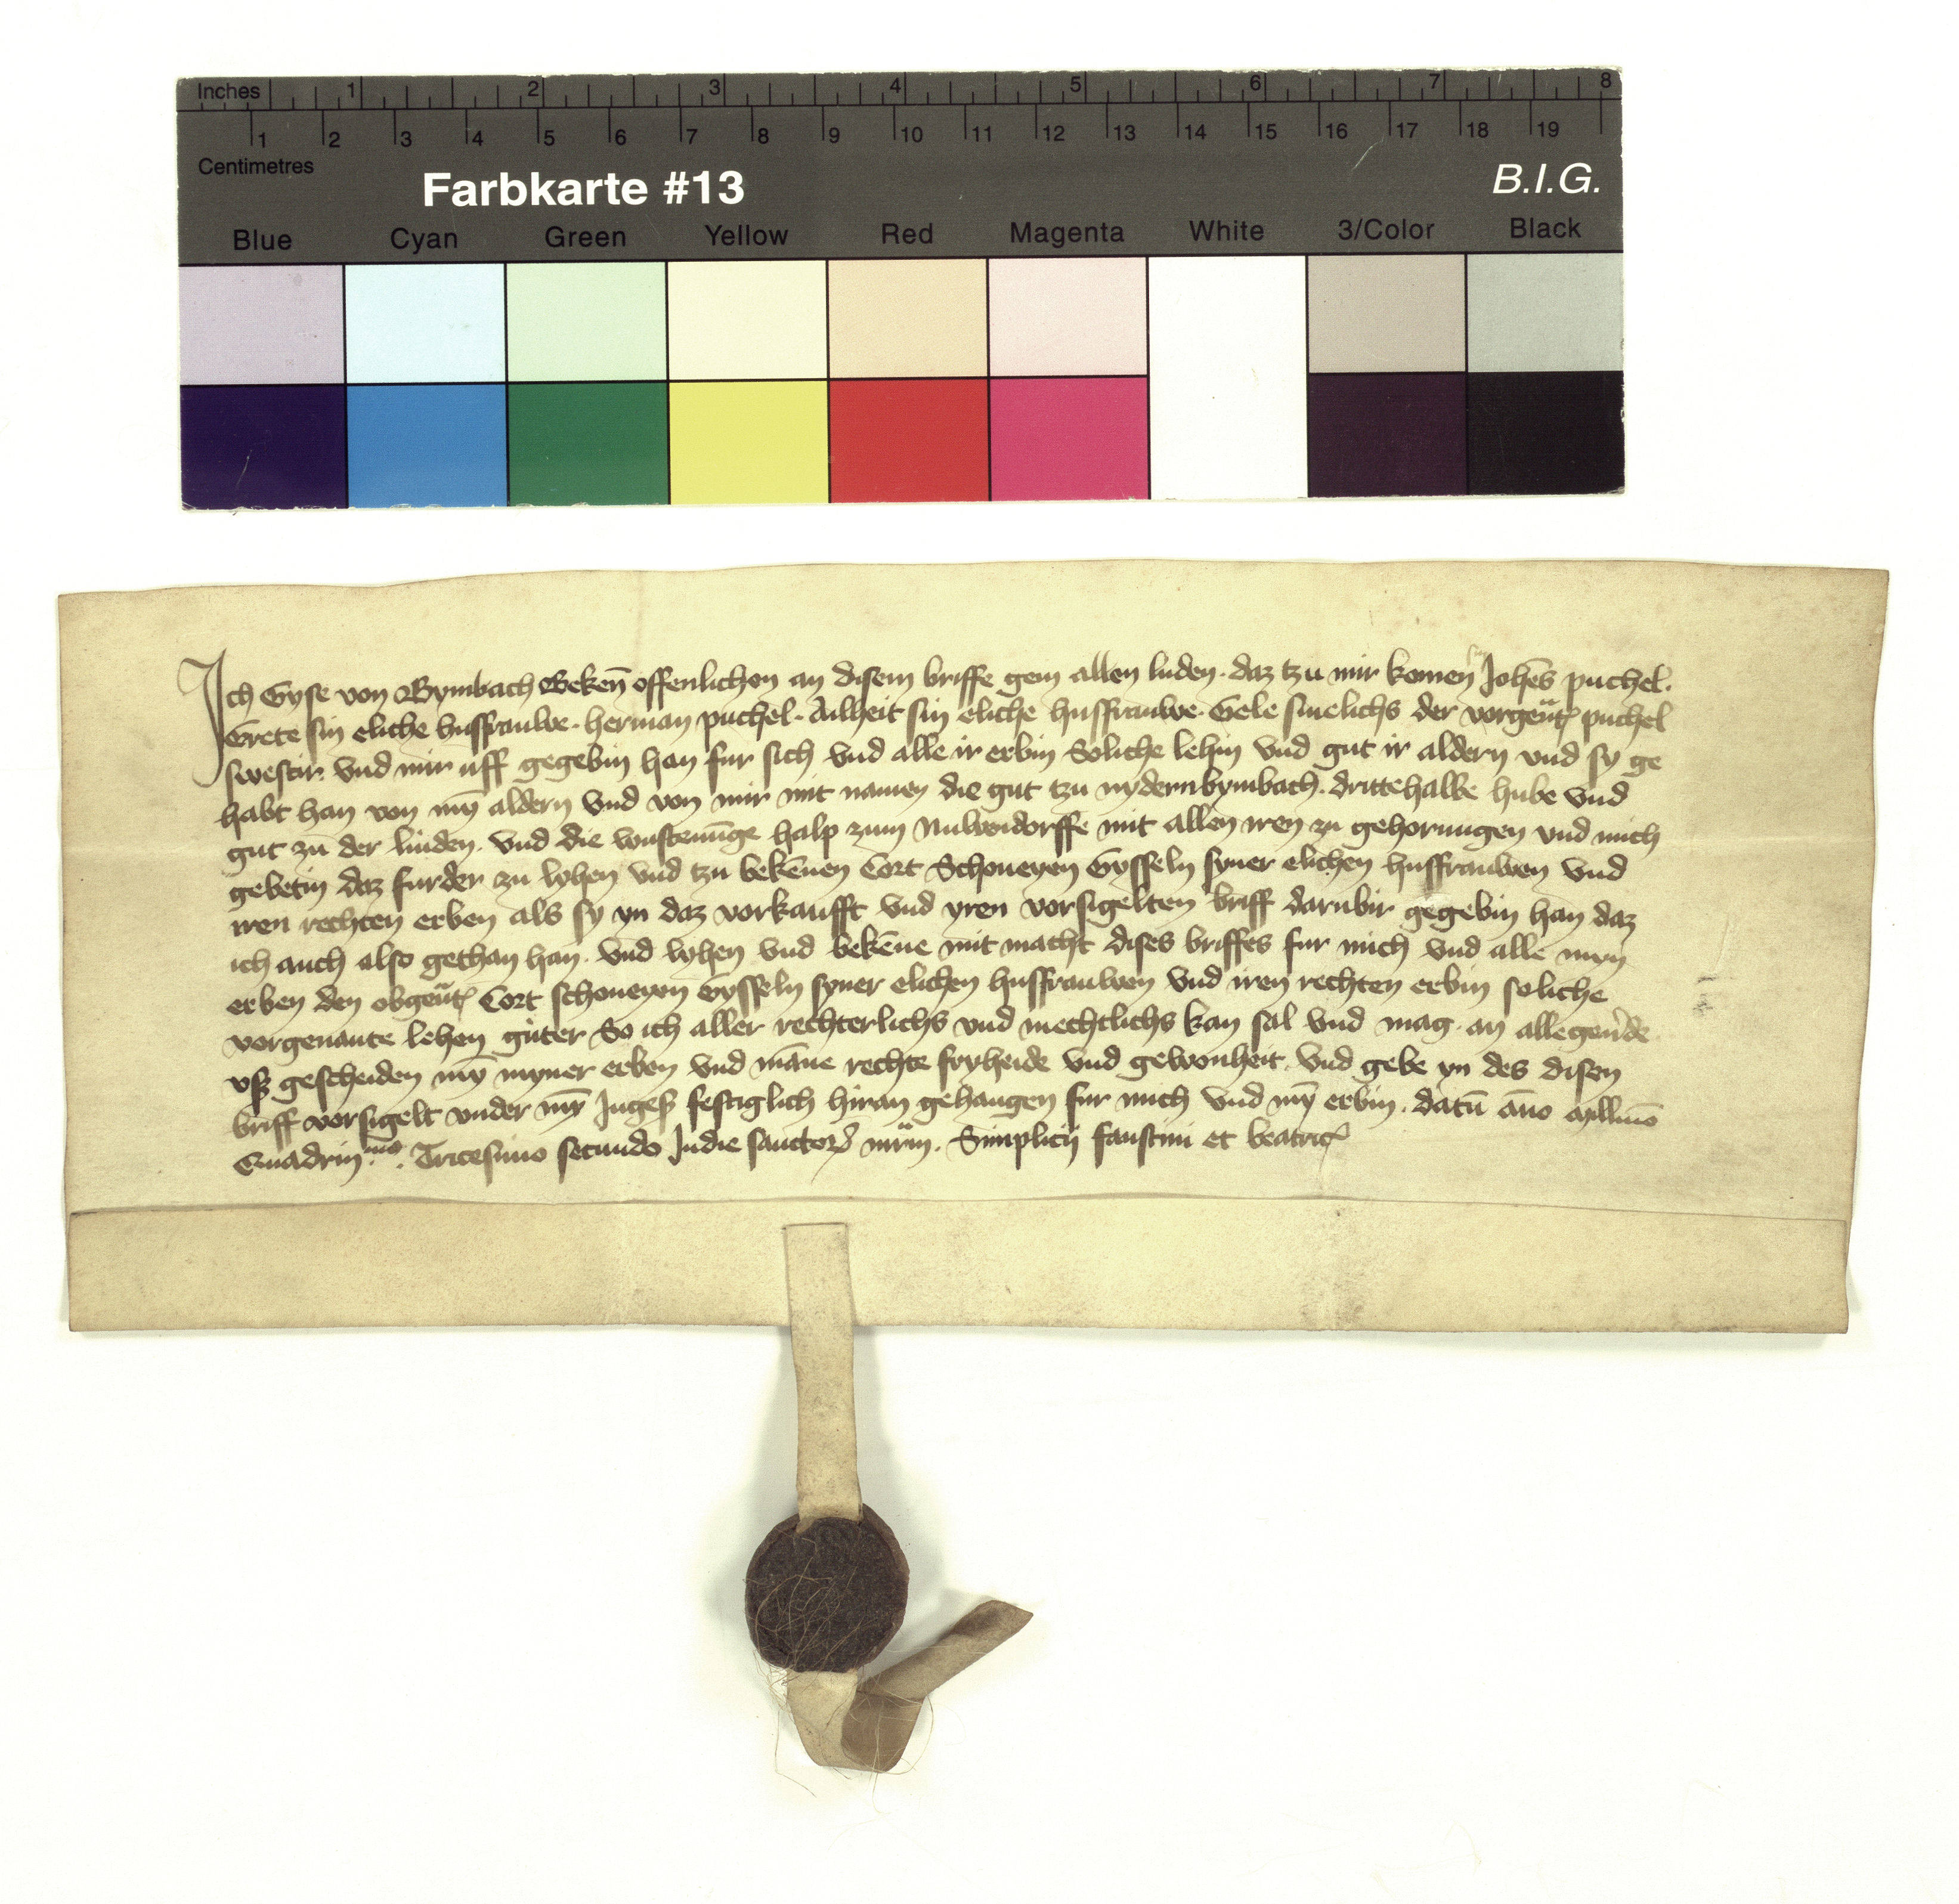 Inches 1 2 3 4 5 6 7 8
1 2 3 4 5 6 7 8 9 10 11 12 13 14 15 16 17 18 19
Centimetres
Farbkarte #13 B.I.G.
Blue Cyan Green Yellow Red Magenta White 3/Color Black
Ich Gyse von Bymbach Bekeñ offenlichen an disem briffe gein allen luden. daz tzu mir komen sin Johēs puchel.
Grete sin eliche husfrauwe. herman puchel. Alheit sin eliche husfrauwe. Gele der puchel
swestir. vnd mir uff gegebin han fur sich vnd alle ir erbin Soliche lehin vnd gut ir aldern vnd sy ge
habt han von mȳ aldern vnd von mir mit namen die gut tzu nydernbymbach. drittehalbe hube vnd
gut zu der linden. vnd die wustenūge halp zum Nuwendorffe mit allen iren zu gehorungen vnd mich
gebetin daz furder zu lyhen vnd tzu bekēnen Cort Schoneyen Gysseln syner elichen husfrauwen vnd
iren rechten erben als sy yn daz vorkaufft vnd yren vorsigelten briff darubir gegebin han daz
ich auch also gethan han. vnd lyhen vnd bekēne mit macht dises briffes fur mich vnd alle myn
erben den Cort schoneyen Gysseln syner elichen husfrauwen vnd iren rechten erbin soliche
vorgenante lehen guter So ich aller rechterlichs vnd mechtlichs kan sal vnd mag. an
vß gescheiden mȳ myner erben vnd māne rechte fryheide vnd gewonheit. vnd gebe yn des disen
briff vorsigelt vnder Ingeß festiglich hiran gehangen fur mich vnd mȳ erbin. datū āno
Quadrin.mo. Tricesimo secundo Indie sanctor mrm. Simplicij faustini et beatric